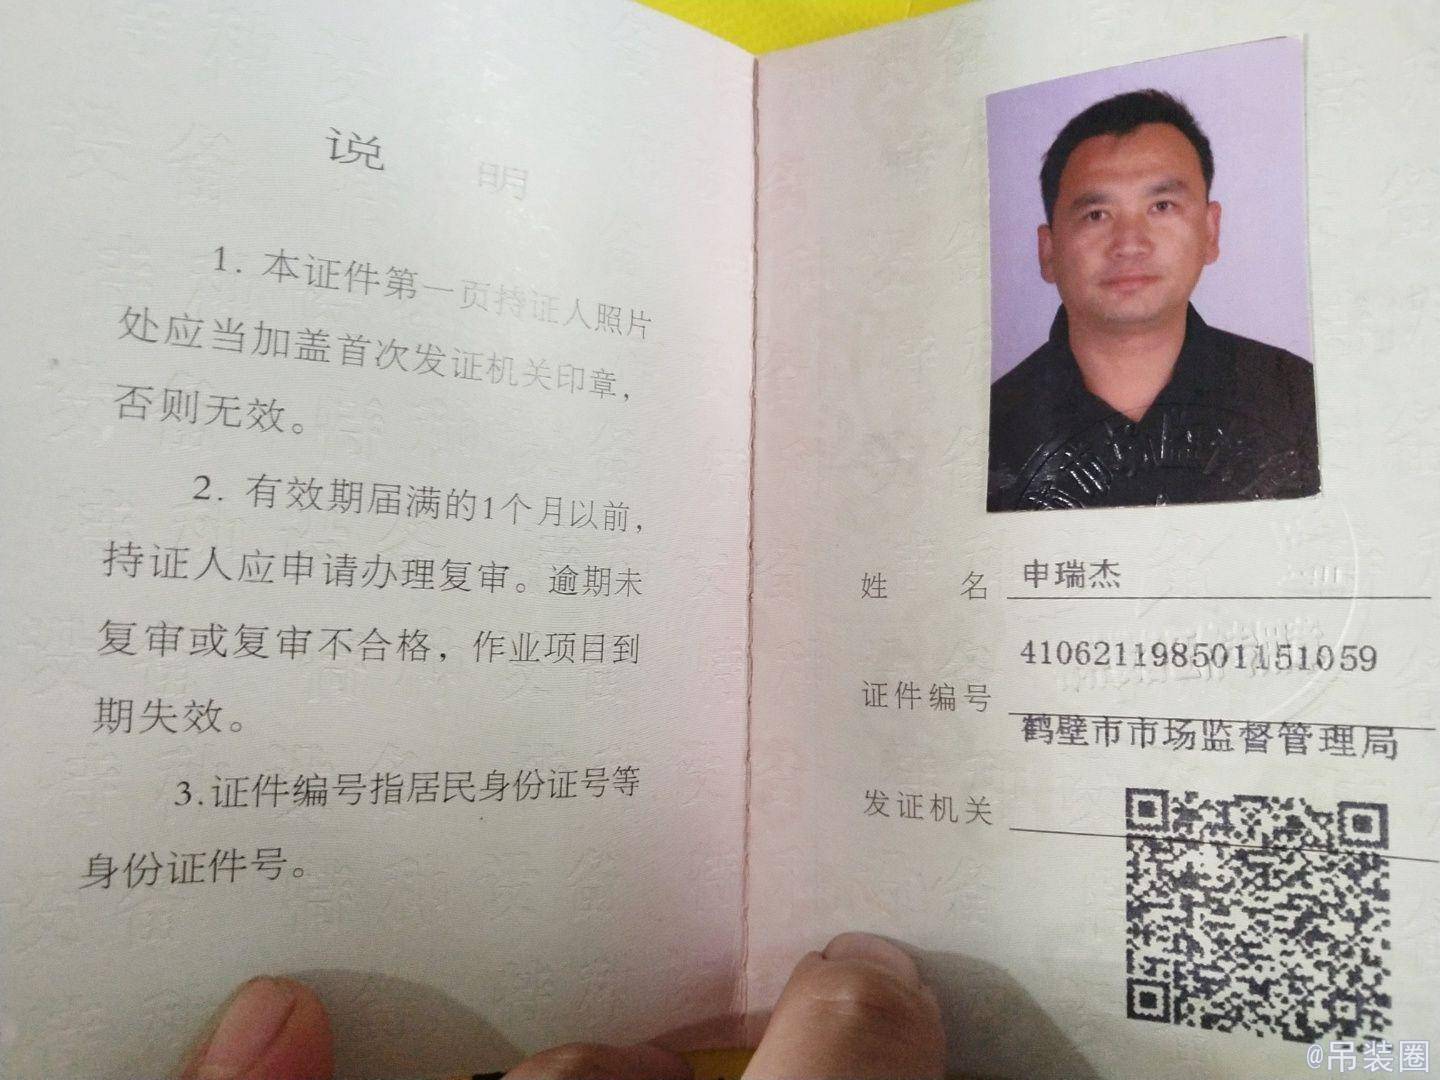 说 明
1. 本证件第一页持证人照片
处应当加盖首次发证机关印章，
否则无效。
2. 有效期届满的1个月以前，
持证人应申请办理复审。逾期未
复审或复审不合格，作业项目到
期失效。
3.证件编号指居民身份证号等
身份证件号。
姓 名 申瑞杰
410621198501151059
证件编号
鹤壁市市场监督管理局
发证机关
@吊装圈